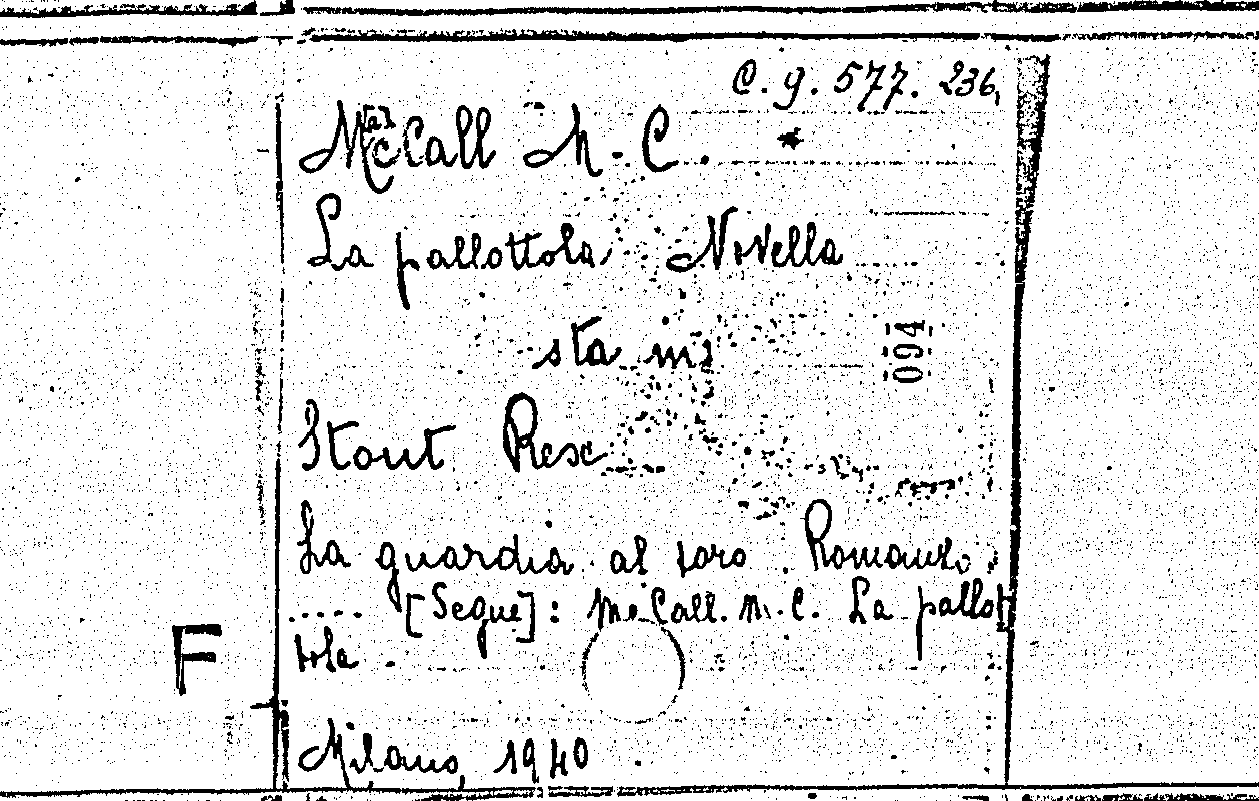 C. g. 577. 236,
M[a]cCall M. C. *
La pallottola Novella
sta in:
Stout Rex
La guardia al toro Romanzo.
..... [Segue]: Mc Call. M. C. La pallot
tola.
Milano, 1940
094
F